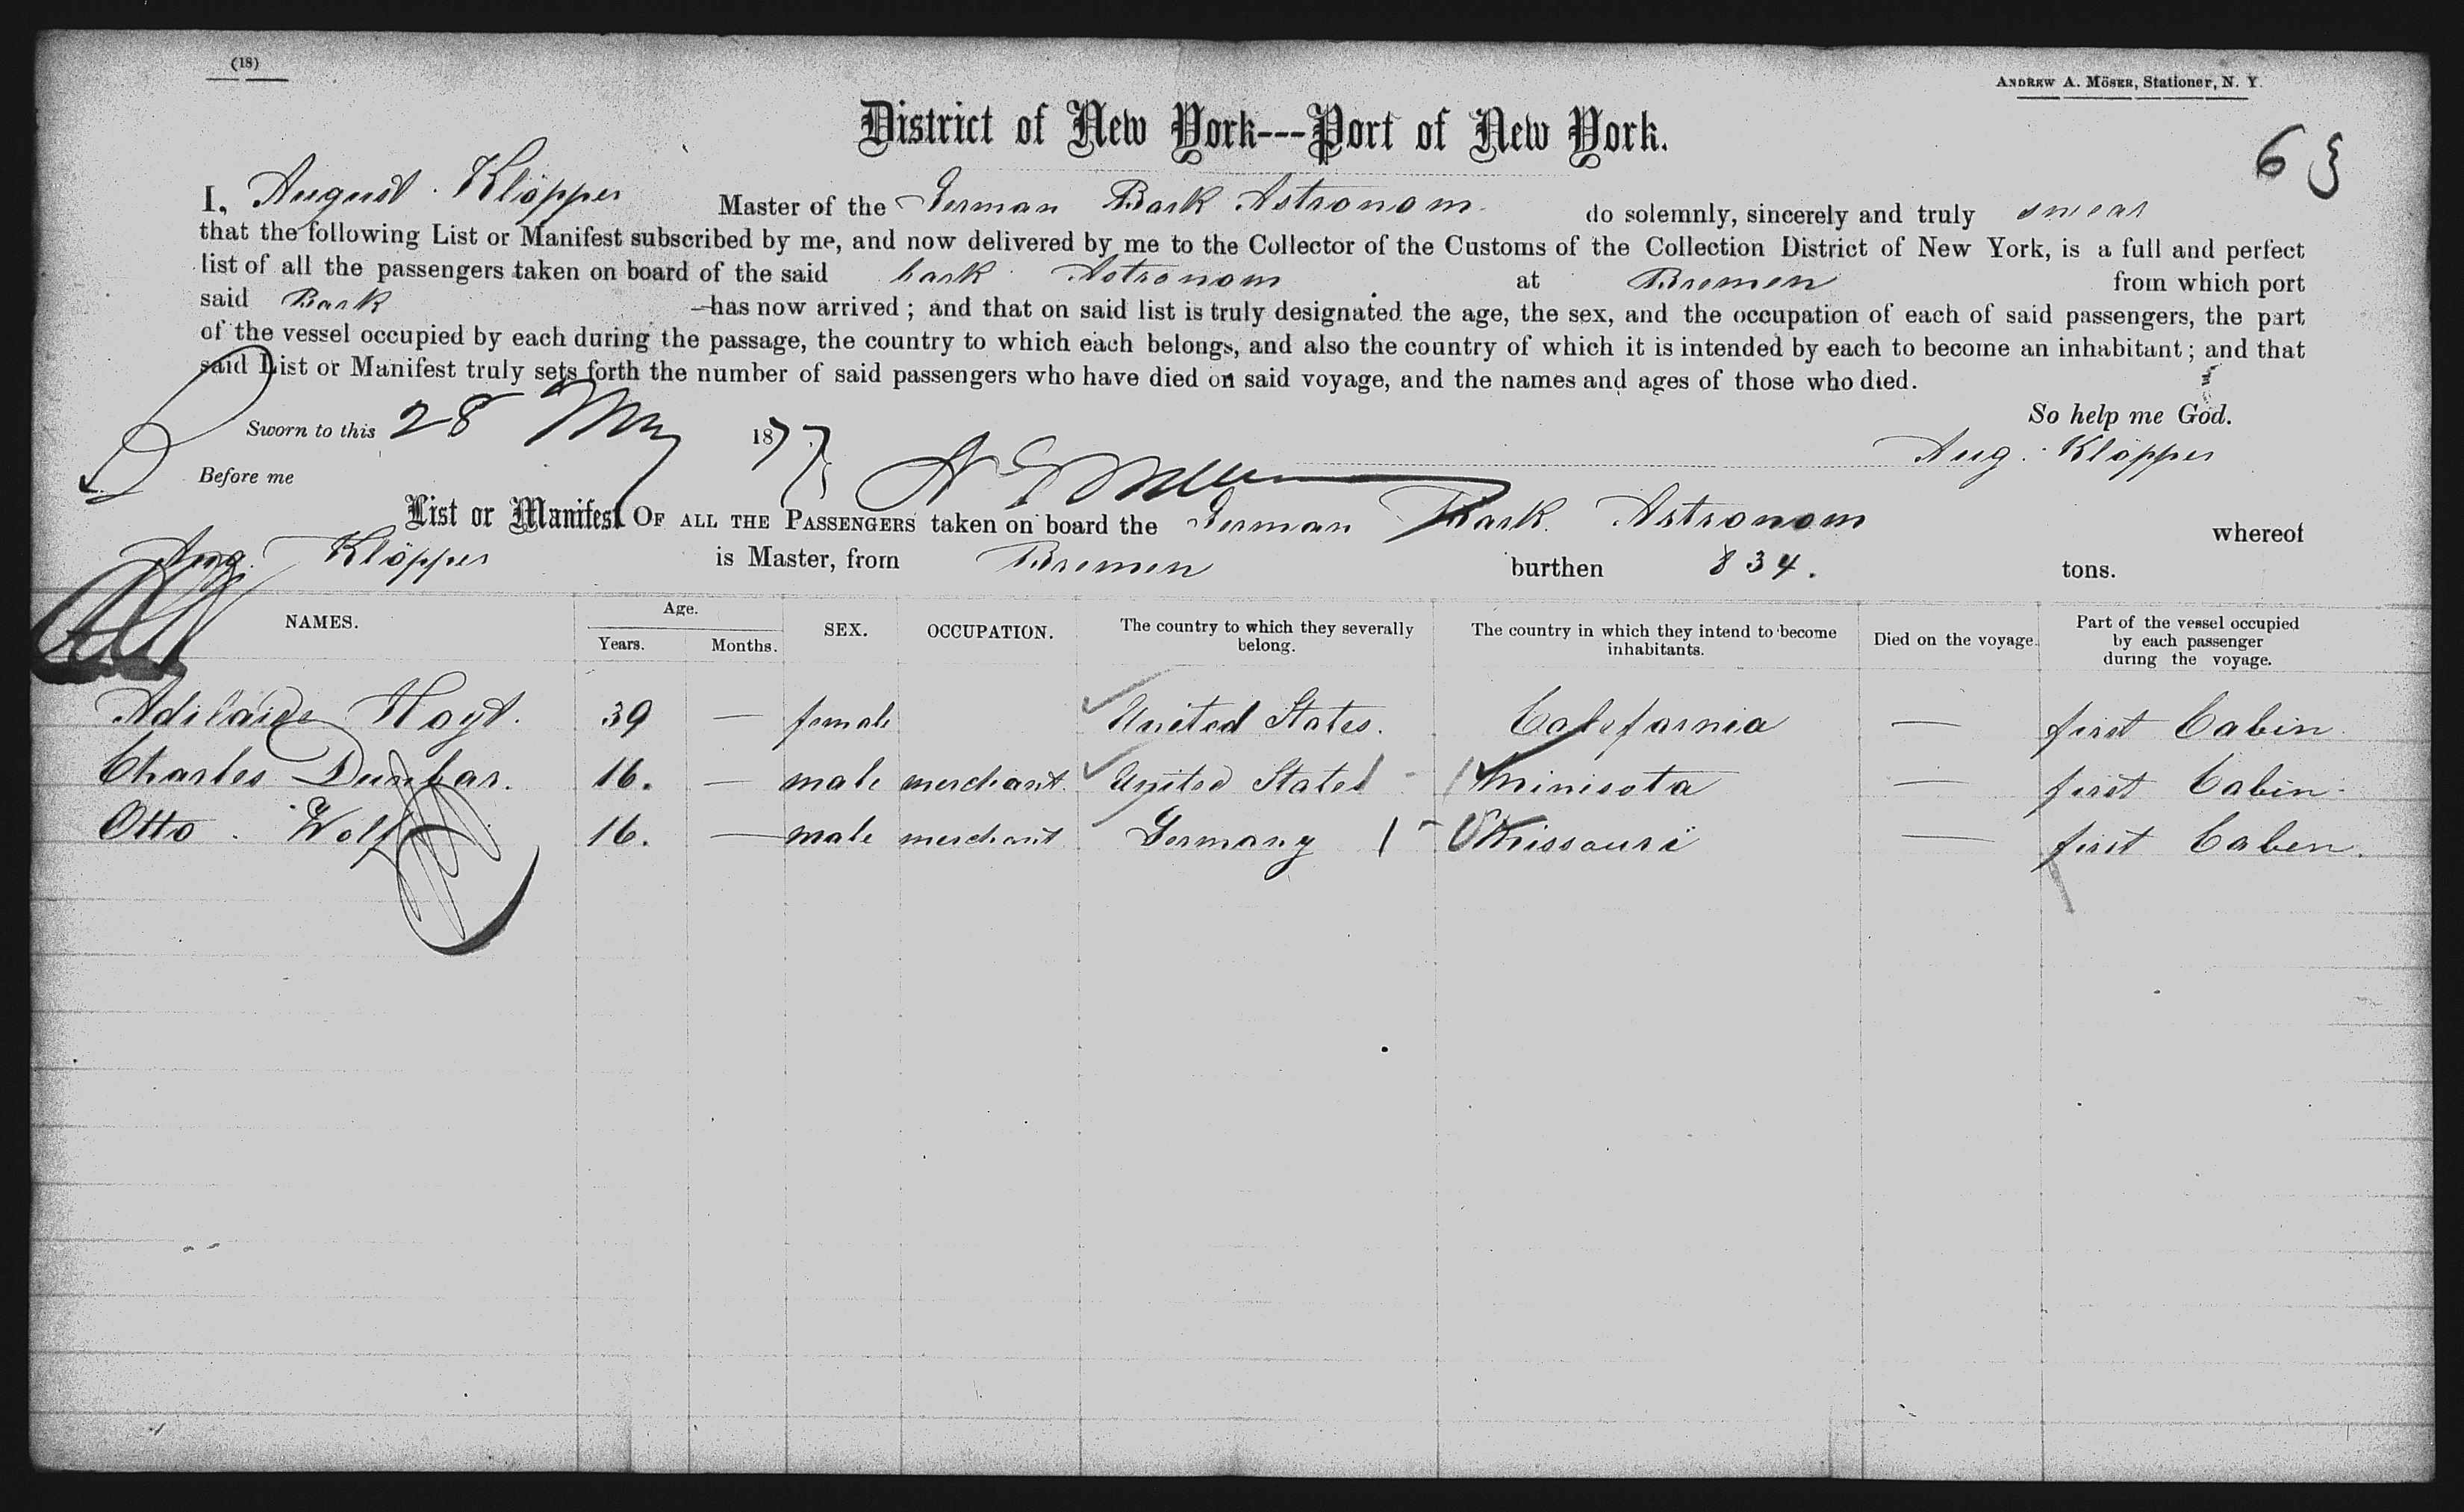 (18)
ANDREW A. MÖSER, Stationer, N. Y.
District of New York---Port of New York.
6
I, August Klöpper Master of the German Bark Astronom do solemnly, sincerely and truly swear
that the following List or Manifest subscribed by me, and now delivered by me to the Collector of the Customs of the Collection District of New York, is a full and perfect
list of all the passengers taken on board of the said bark Astronom at Bremen from which port
said Bark has now arrived; and that on said list is truly designated the age, the sex, and the occupation of each of said passengers, the part
of the vessel occupied by each during the passage, the country to which each belongs, and also the country of which it is intended by each to become an inhabitant; and that
said List or Manifest truly sets forth the number of said passengers who have died on said voyage, and the names and ages of those who died.
So help me God.
Sworn to this 28 May 1877
Aug. Klöpper
Before me
List or Manifest OF ALL THE PASSENGERS taken on board the German Bark Astronom whereof
Aug. Klöpper is Master, from Bremen burthen 834. tons.
NAMES. Age. Years. Months. SEX. OCCUPATION. The country to which they severally belong. The country in which they intend to become inhabitants. Died on the voyage. Part of the vessel occupied by each passenger during the voyage.
Adilaide Hoyt. 39 — female United States. Califarnia — first Cabin.
Charles Dunbar. 16. — male merchant. United States Minisota — first Cabin.
Otto Wolf 16. — male merchant Germany Missouri — first Caben.